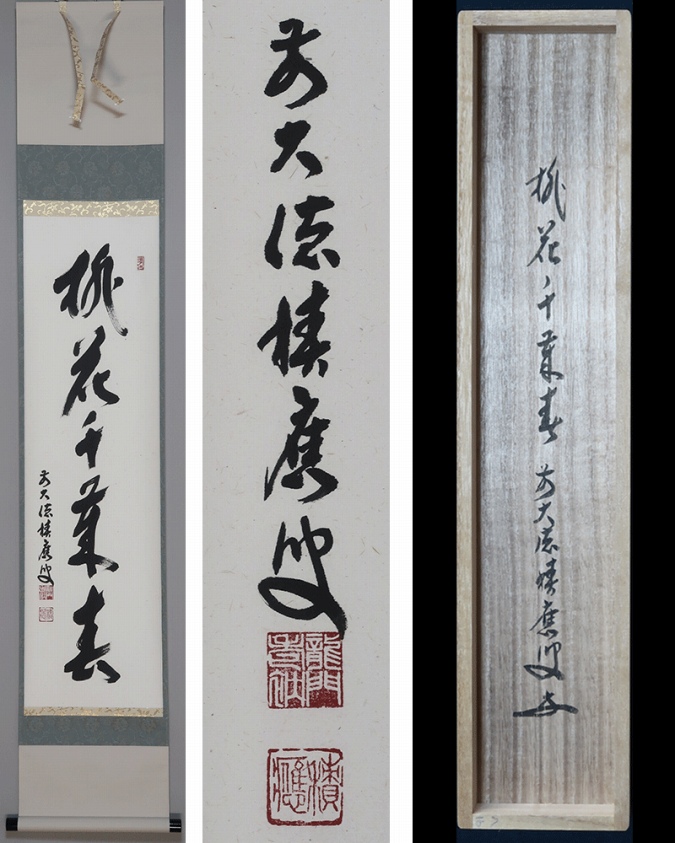 桃花千葉春
前大徳積應叟
前大徳積應叟
龍門
積應
桃花千葉春 前大徳積應叟